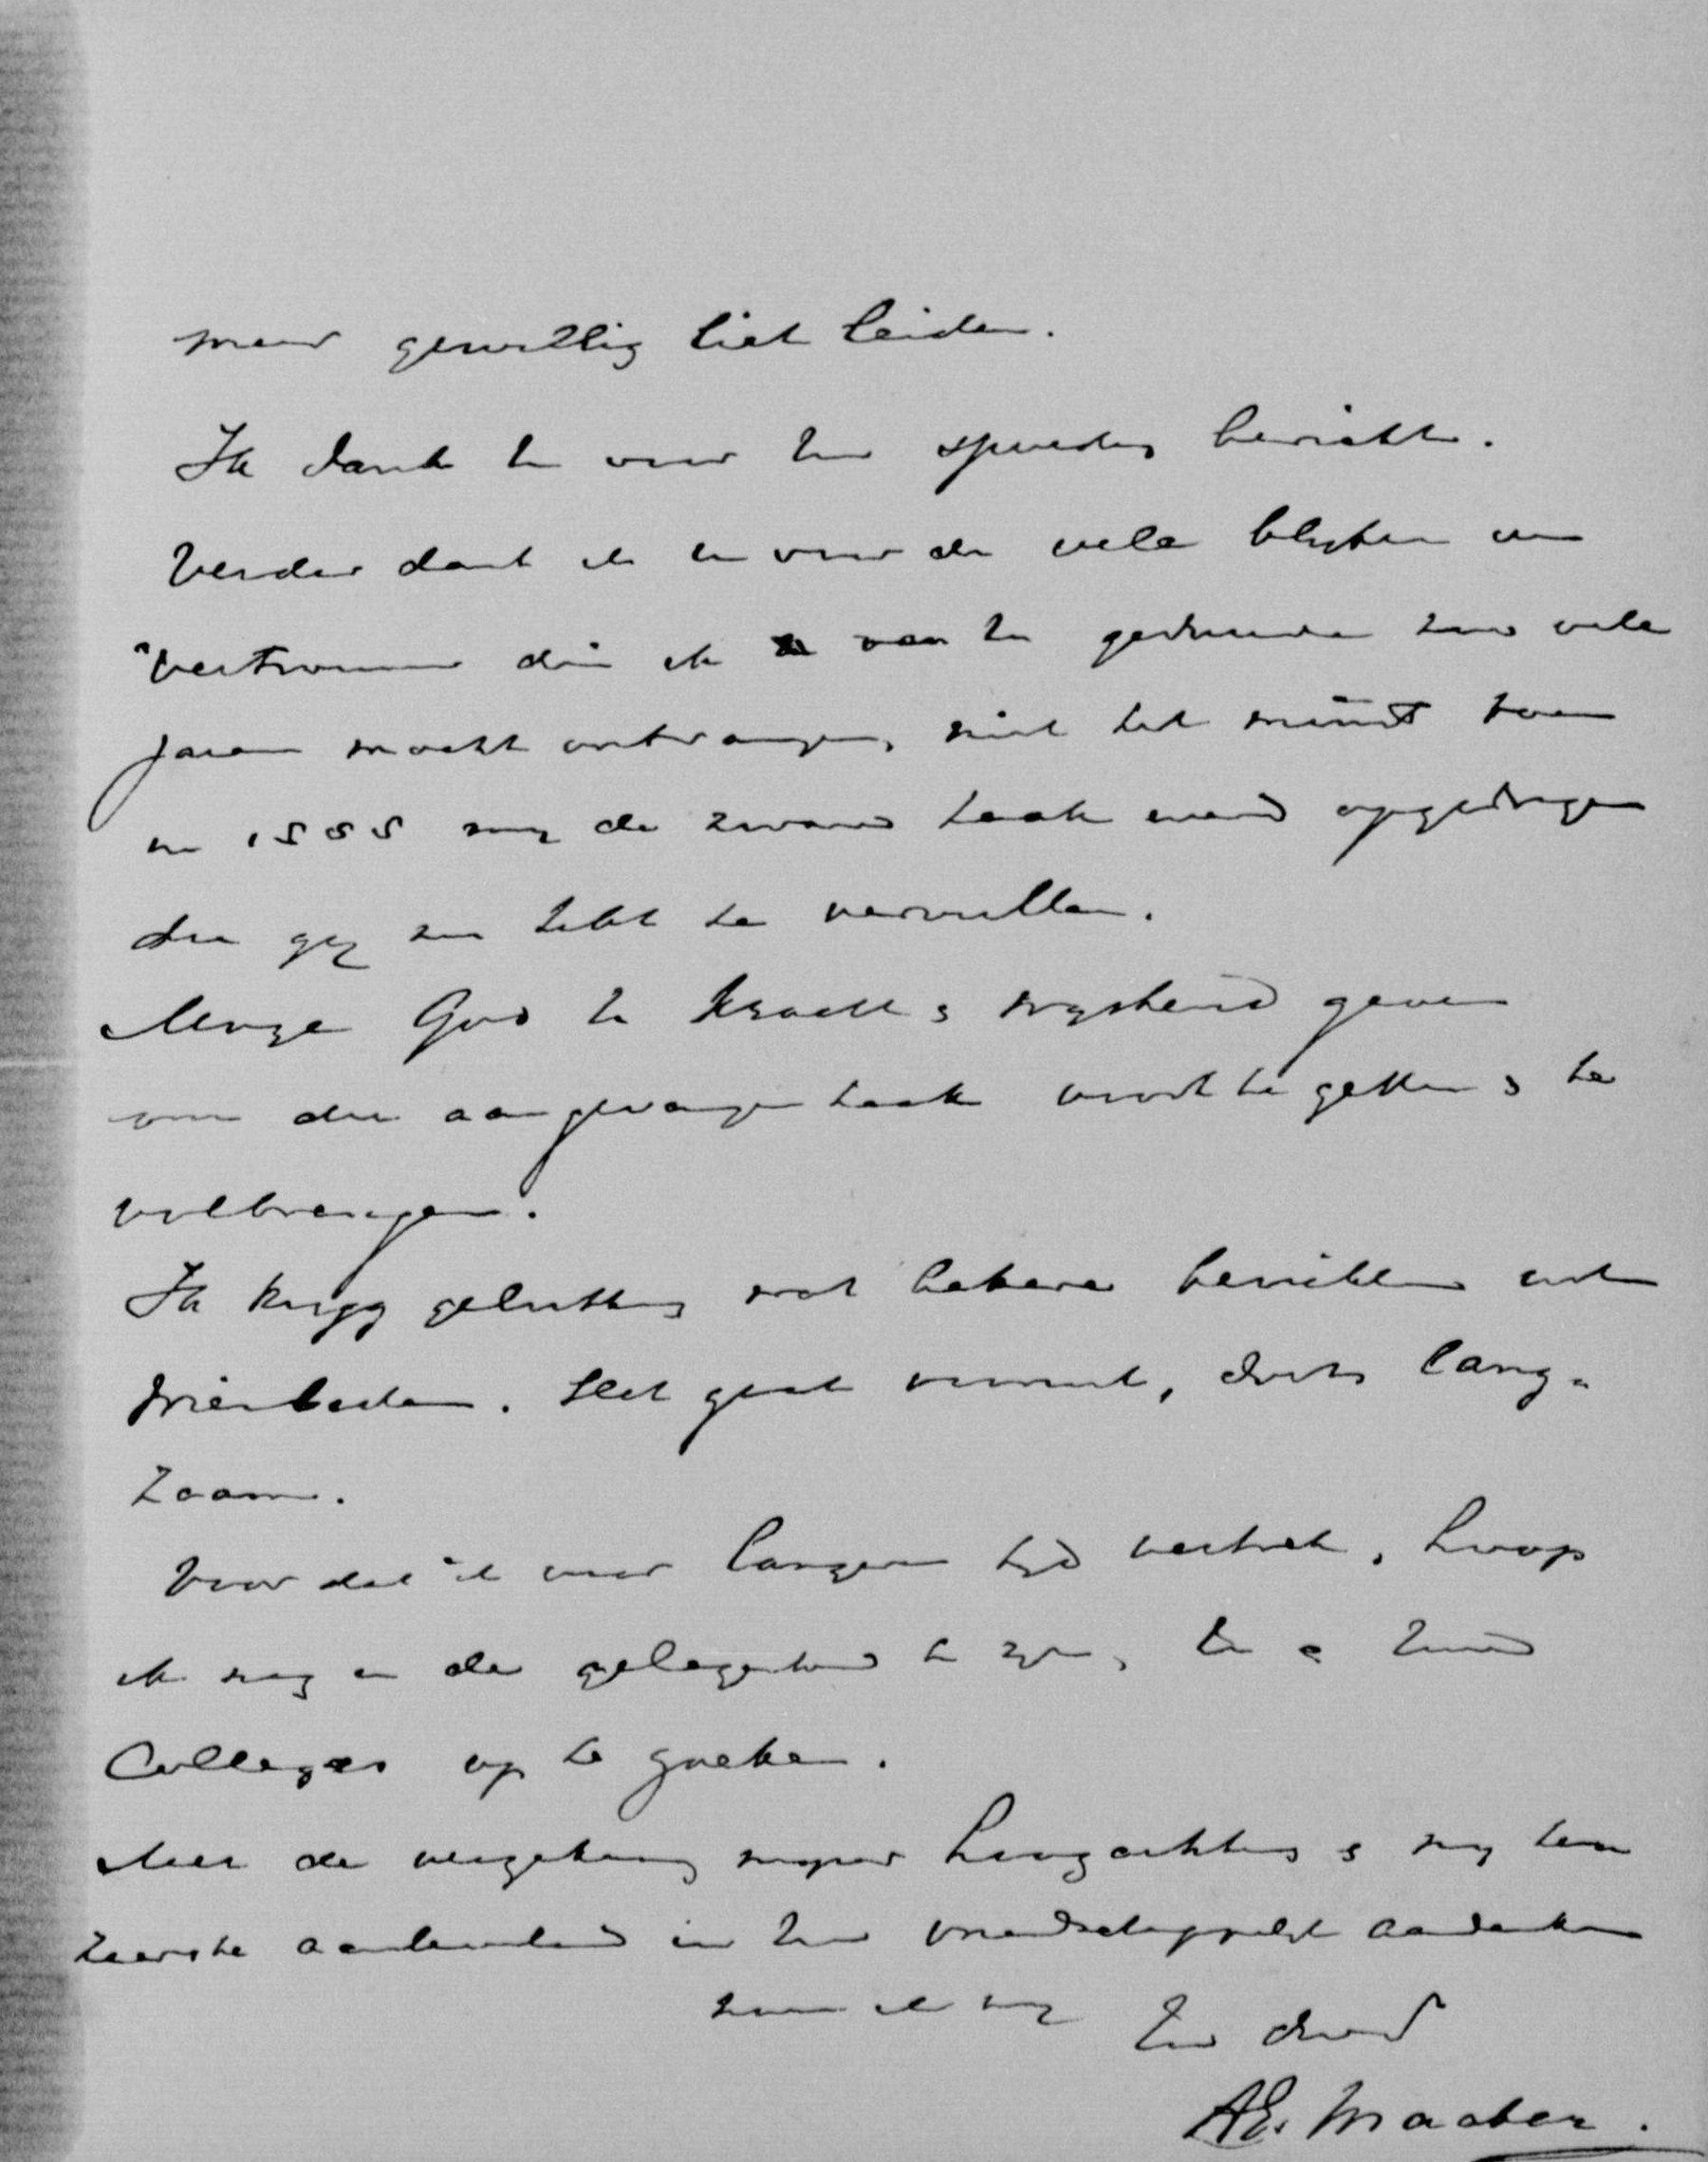 meer gewillig liet leiden.
Ik dank U voor Uw spoedig bericht.
Verder dank ik U voor de vele blijken van
vertrouwen die ik van U gedurende zoo vele
jaren mocht ontvangen, niet het minst toen
in 1888 mij de zware taak werd opgedragen
die gij nu hebt te vervullen.
Moge God U kracht & wijsheid geven
om die aangevangen taak voort te zetten & te
volbrengen.
Ik krijg gelukkig wat betere berichten uit
Wiesbaden. Het gaat vooruit, doch lang-
zaam.
Voor dat ik voor langeren tijd vertrek, hoop
ik nog in de gelegenheid te zijn, U & Uwe
Collegas op te zoeken.
Met de verzekering mijner hoogachting & mij ten
zeerste aanbevelend in Uw vriendschappelijk aandenken
noem ik mij Uw dwd
AE. Mackay.